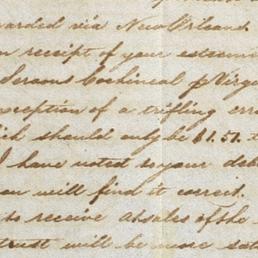 warded via New Orleans
n receipt of your esteem
Serons Cochineal p Virg
xception of a trifling err
ich should only be $1.51. t
I have noted to your deb
ou will find it correct.
to receive a/sales of the
trust will be more sat